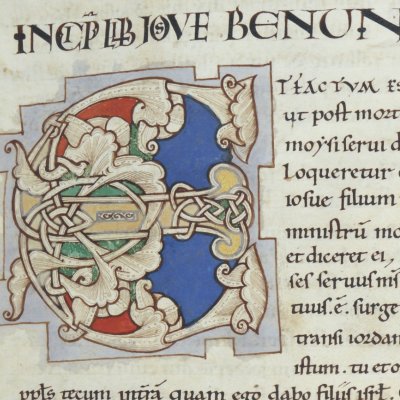 INCIP LIB IOSVE BENUN
ET FACTUM ES
ut post mort
moysi serui d
Loqueretur
iosue filium
ministrū mo
et diceret ei,
ses seruus m̄s
tuus .ē. surge
transi iordan
istum . tu et o
ppl's tecum intrā quam ego dabo filiis isrl.